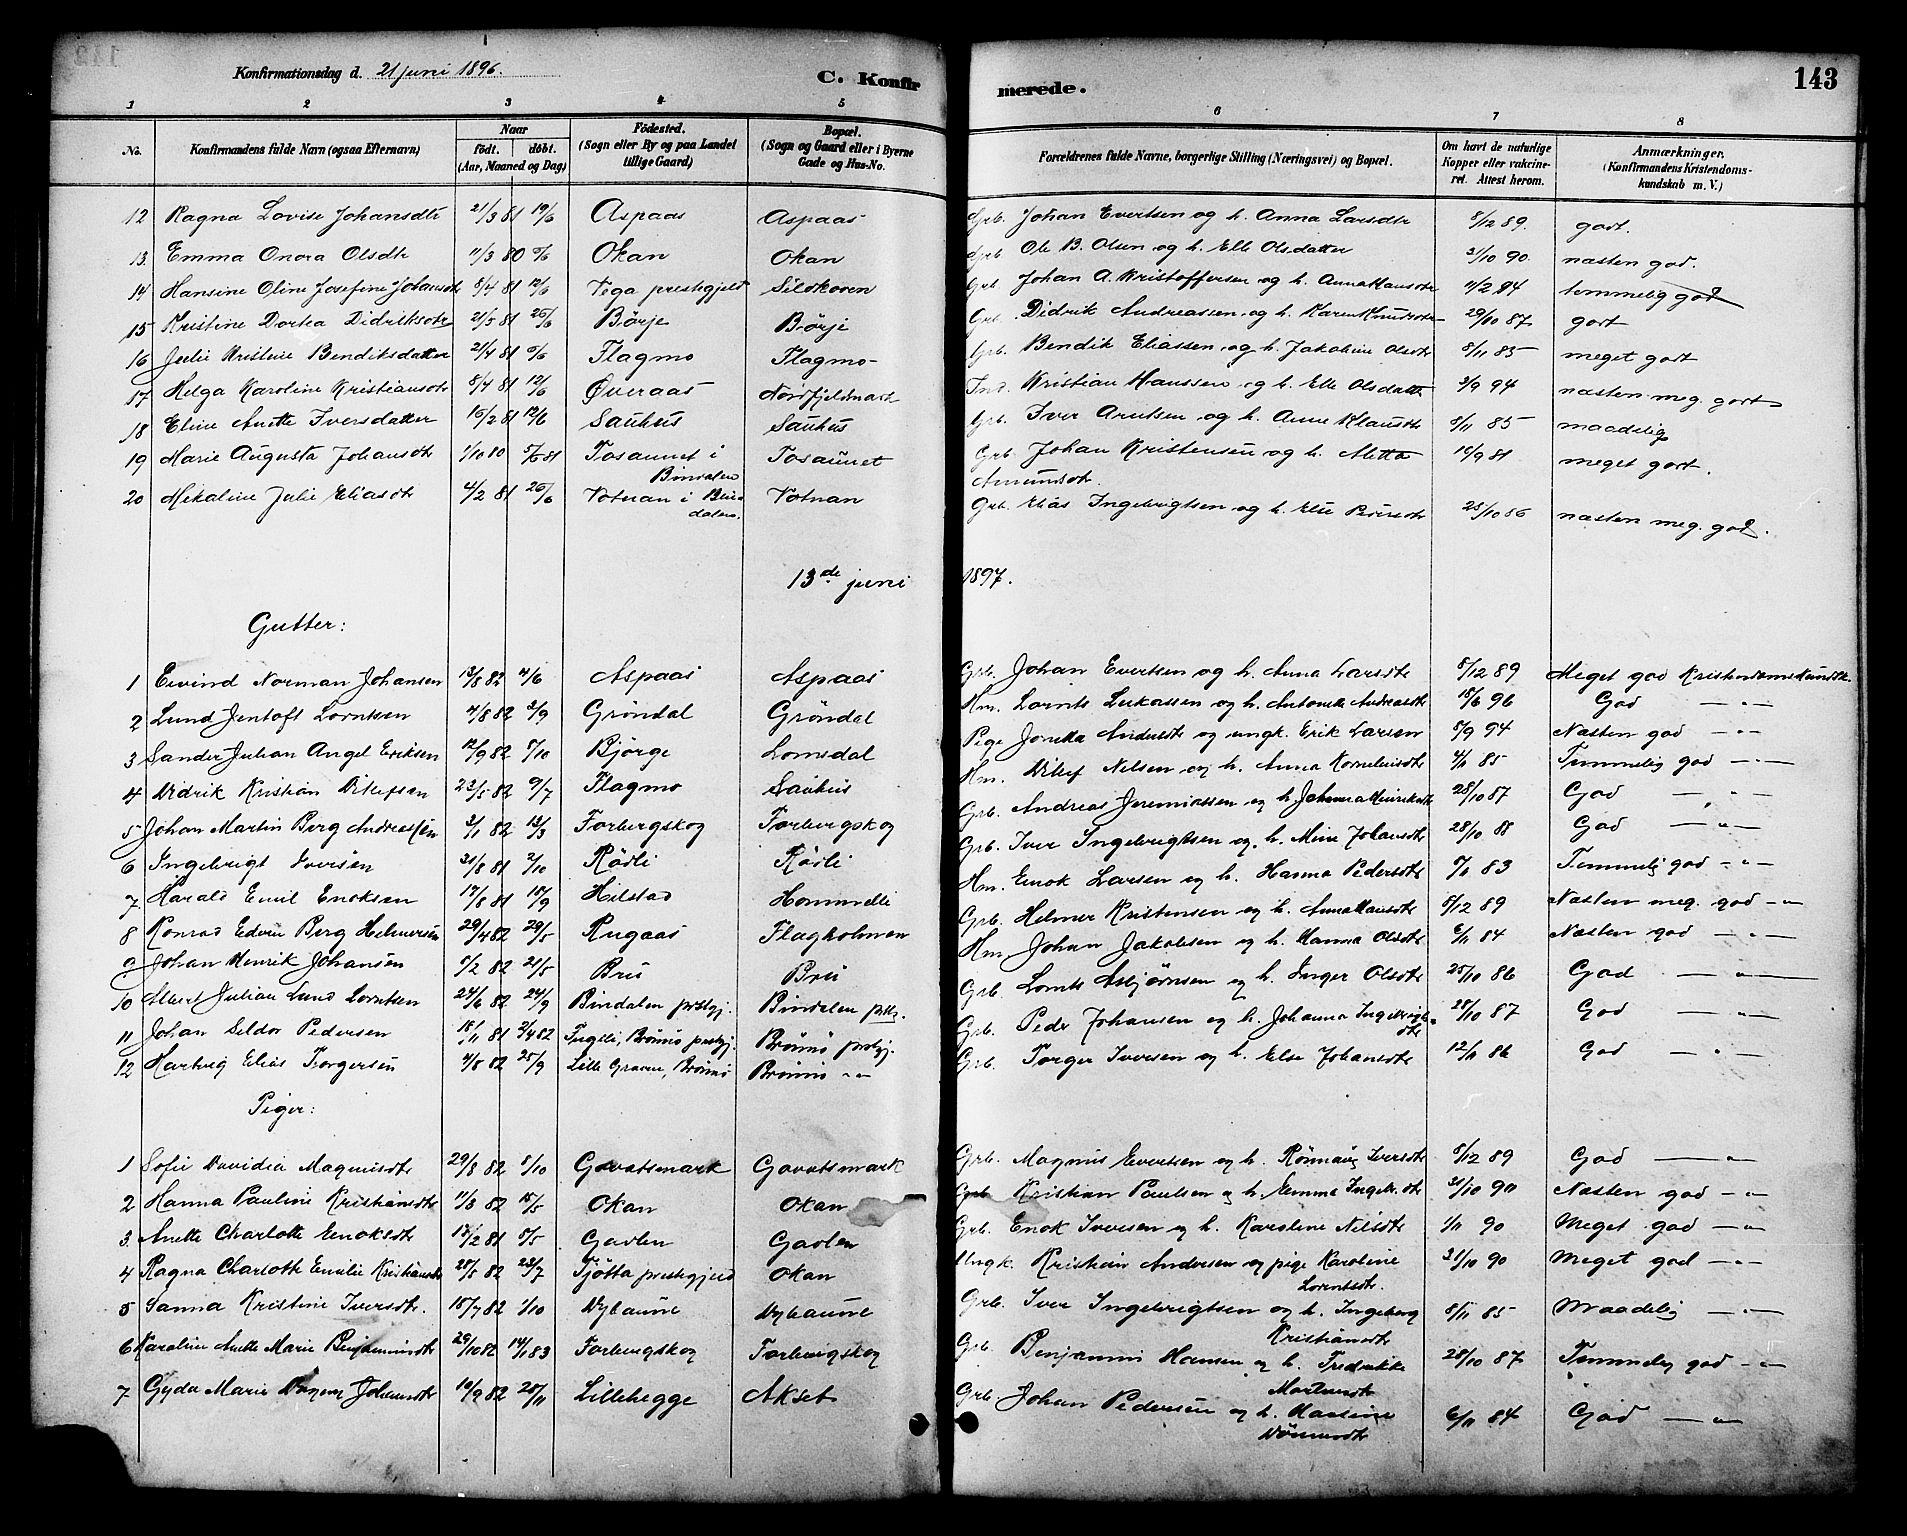 Konfirmationsdag d. 21 juni 1896. C. Konfir merede. 143
1 2 3 4 5 6 7 8
No. Konfirmandens fulde Navn (ogsaa Efternavn) Naar født. døbt. (Aar, Maaned og Dag) Fødested. (Sogn eller By og paa Landet tillige Gaard) Bopæl. (Sogn og Gaard eller i Byerne Gade og Hus-No. Forældrenes fulde Navne, borgerlige Stilling (Næringsvei) og Bopæl. Om havt de naturlige Kopper eller vakcineret. Attest herom. Anmærkninger. (Konfirmandens Kristendomskundskab m. V.)
12 Ragna Lovise Johansdtr 21/3 81 19/6 Aspaas Aspaas Grb. Johan Evertsen og h. Anna Larsdtr 8/12 89. godt.
13. Emma Onora Olsdtr 11/3 80 6/6 Okan Okan Grb. Ole B. Olsen og h. Elle Olsdatter 31/10 90. næsten god.
14 Hansine Oline Josefine Johansdtr 8/4 81 12/6 Vega prestegjeld Sildhoven Grb. Johan A. Kristoffersen og h. Anna Hansdtr 11/2 94 temmelig god
15 Kristine Dortea Didriksdtr 21/5 81 26/6 Börje Börje Grb. Didrik Andreassen og h. Karen Knudsdtr 29/10 87 godt
16 Julie Kristine Bendiksdatter 21/4 81 6/6 Flagmo Flagmo Grb. Bendik Eliassen og h. Jakobine Olsdtr 8/11 85 meget godt
17 Helga Karoline Kristiansdtr 8/4 81 12/6 Øveraas Nordfjeldmark Ind. Kristian Hanssen og h. Elle Olsdatter 3/9 94 næsten meg. godt
18 Eline Anette Iversdatter 15/2 81 12/6 Sauhus Sauhus Grb. Iver Arntsen og h. Anne Klausdtr 8/11 85 maadelig
19 Marie Augusta Johansdtr 1/10 80 5/6 81 Tosaunet i Bindalen Tosaunet Grb. Johan Kristensen og h. Aletta Amundsdtr. 16/9 81 meget godt.
20 Mikaline Julie Eliasdtr 4/2 81 26/6 Votnan i Bindalen. Votnan Grb. Elias Ingebrigtsen og h. Else Pedersdtr 25/10 86 næsten meg. god.
13de juni 1897.
Gutter:
1 Eivind Norman Johansen 13/8 82 4/6 Aspaas Aspaas Grb. Johan Evertsen og h. Anna Larsdtr 8/12 89 Meget god Kristendomskundsk.
2 Lund Jentoft Lorntsen 4/8 82 3/9 Gröndal Gröndal Hm. Lornts Lukassen og h. Antonette Andreasdtr 18/6 96 God — " —
3 Sander Julian Angel Eriksen 12/9 82 8/10 Bjørge Lomsdal Pige Jonetta Andersdt og ungk. Erik Larsen 5/9 94 Næsten god — " —
4 Didrik Kristian Ditlefsen 22/5 82 9/7 Flagmo Sauhus Hm. Ditlef Nilsen og h. Anna Korneliusdtr 4/11 85 Temmelig god — " —
5 Johan Martin Berg Andreassen 3/1 82 12/3 Forbergskog Forbergskog Grb. Andreas Jeremiassen og h. Johanna Henriksdtr 28/10 87 God — " —
6 Ingebrigt Iversen 21/8 81 2/10 Rödli Rödli Grb. Iver Ingebrigtsen og h. Mine Johansdtr 28/10 88 God — " —
7 Harald Emil Enoksen 17/8 81 18/9 Hilstad Hommelli Hm. Enok Larsen og h. Hanna Pedersdtr 9/6 83 Temmelig god — " —
8 Konrad Edvin Berg Helmersen 29/4 82 29/5 Rugaas Flagholmen Grb. Helmer Kristensen og h. Anna Hansdtr 8/12 89 Næsten meg. god — " —
9 Johan Henrik Johansen 5/2 82 21/5 Bru Bru Hm. Johan Jakobsen og h. Hanna Olsdtr 6/11 84 Næsten god — " —
10 Albert Julian Lund Lorntsen 24/6 82 24/9 Bindalen prstgj. Bindalen prstg. Grb. Lornts Asbjørnsen og h. Inger Olsdtr 25/10 86 God — " —
11 Johan Seldor Pedersen 18/11 81 2/4 82 Fuglli, Brönnö prestgj. Brönnö prstgj. Grb. Peder Johansen og h. Johanna Ingebrigtsdtr 28/10 87 God — " —
12 Hartvig Elias Torgersen 4/8 82 25/9 Lille Graven, Brönnö Brönnö — " — Grb. Torger Iversen og h. Else Johansdtr 12/11 86 God — " —
Piger:
1 Sofie Davidia Magnusdtr 29/8 82 8/10 Govatsmark Govatsmark Grb. Magnus Evertsen og h. Rönnaug Iversdtr 8/12 89 God — " —
2 Hanna Pauline Kristiansdtr 11/3 82 15/5 Okan Okan Grb. Kristian Paulsen og h. Emma Ingebr.dtr 31/10 90 Næsten god — " —
3. Anette Charlotte Enoksdtr 18/2 81 5/5 Gaolen Gaolen Grb. Enok Iversen og h. Karoline Nilsdtr 1/11 90 Meget god — " —
4 Ragna Charlotte Emilie Kristiansdtr 28/5 82 23/7 Tjötta prestegjeld Okan Ungk. Kristian Andersen og pige Karoline Lorntsdtr. 31/10 90 Meget god — " —
5 Sanna Kristine Iversdtr. 18/7 82 1/10 Nybaune Nybaune Grb. Iver Ingebrigtsen og h. Ingeborg Kristiansdtr 8/11 85 Maadelig — " —
6 Karoline Anette Marie Benjaminsdtr 29/10 82 14/1 83 Forbergskog Forbergskog Grb. Benjamin Hansen og h. Fredrikke Mortensdtr 28/10 87 Temmelig god — " —
7 Gyda Marie Dagny Johansdtr 19/9 82 28/11 Lillehegge Akset Grb. Johan Pedersen og h. Hansine Dönnesdtr 6/11 84 God — " —